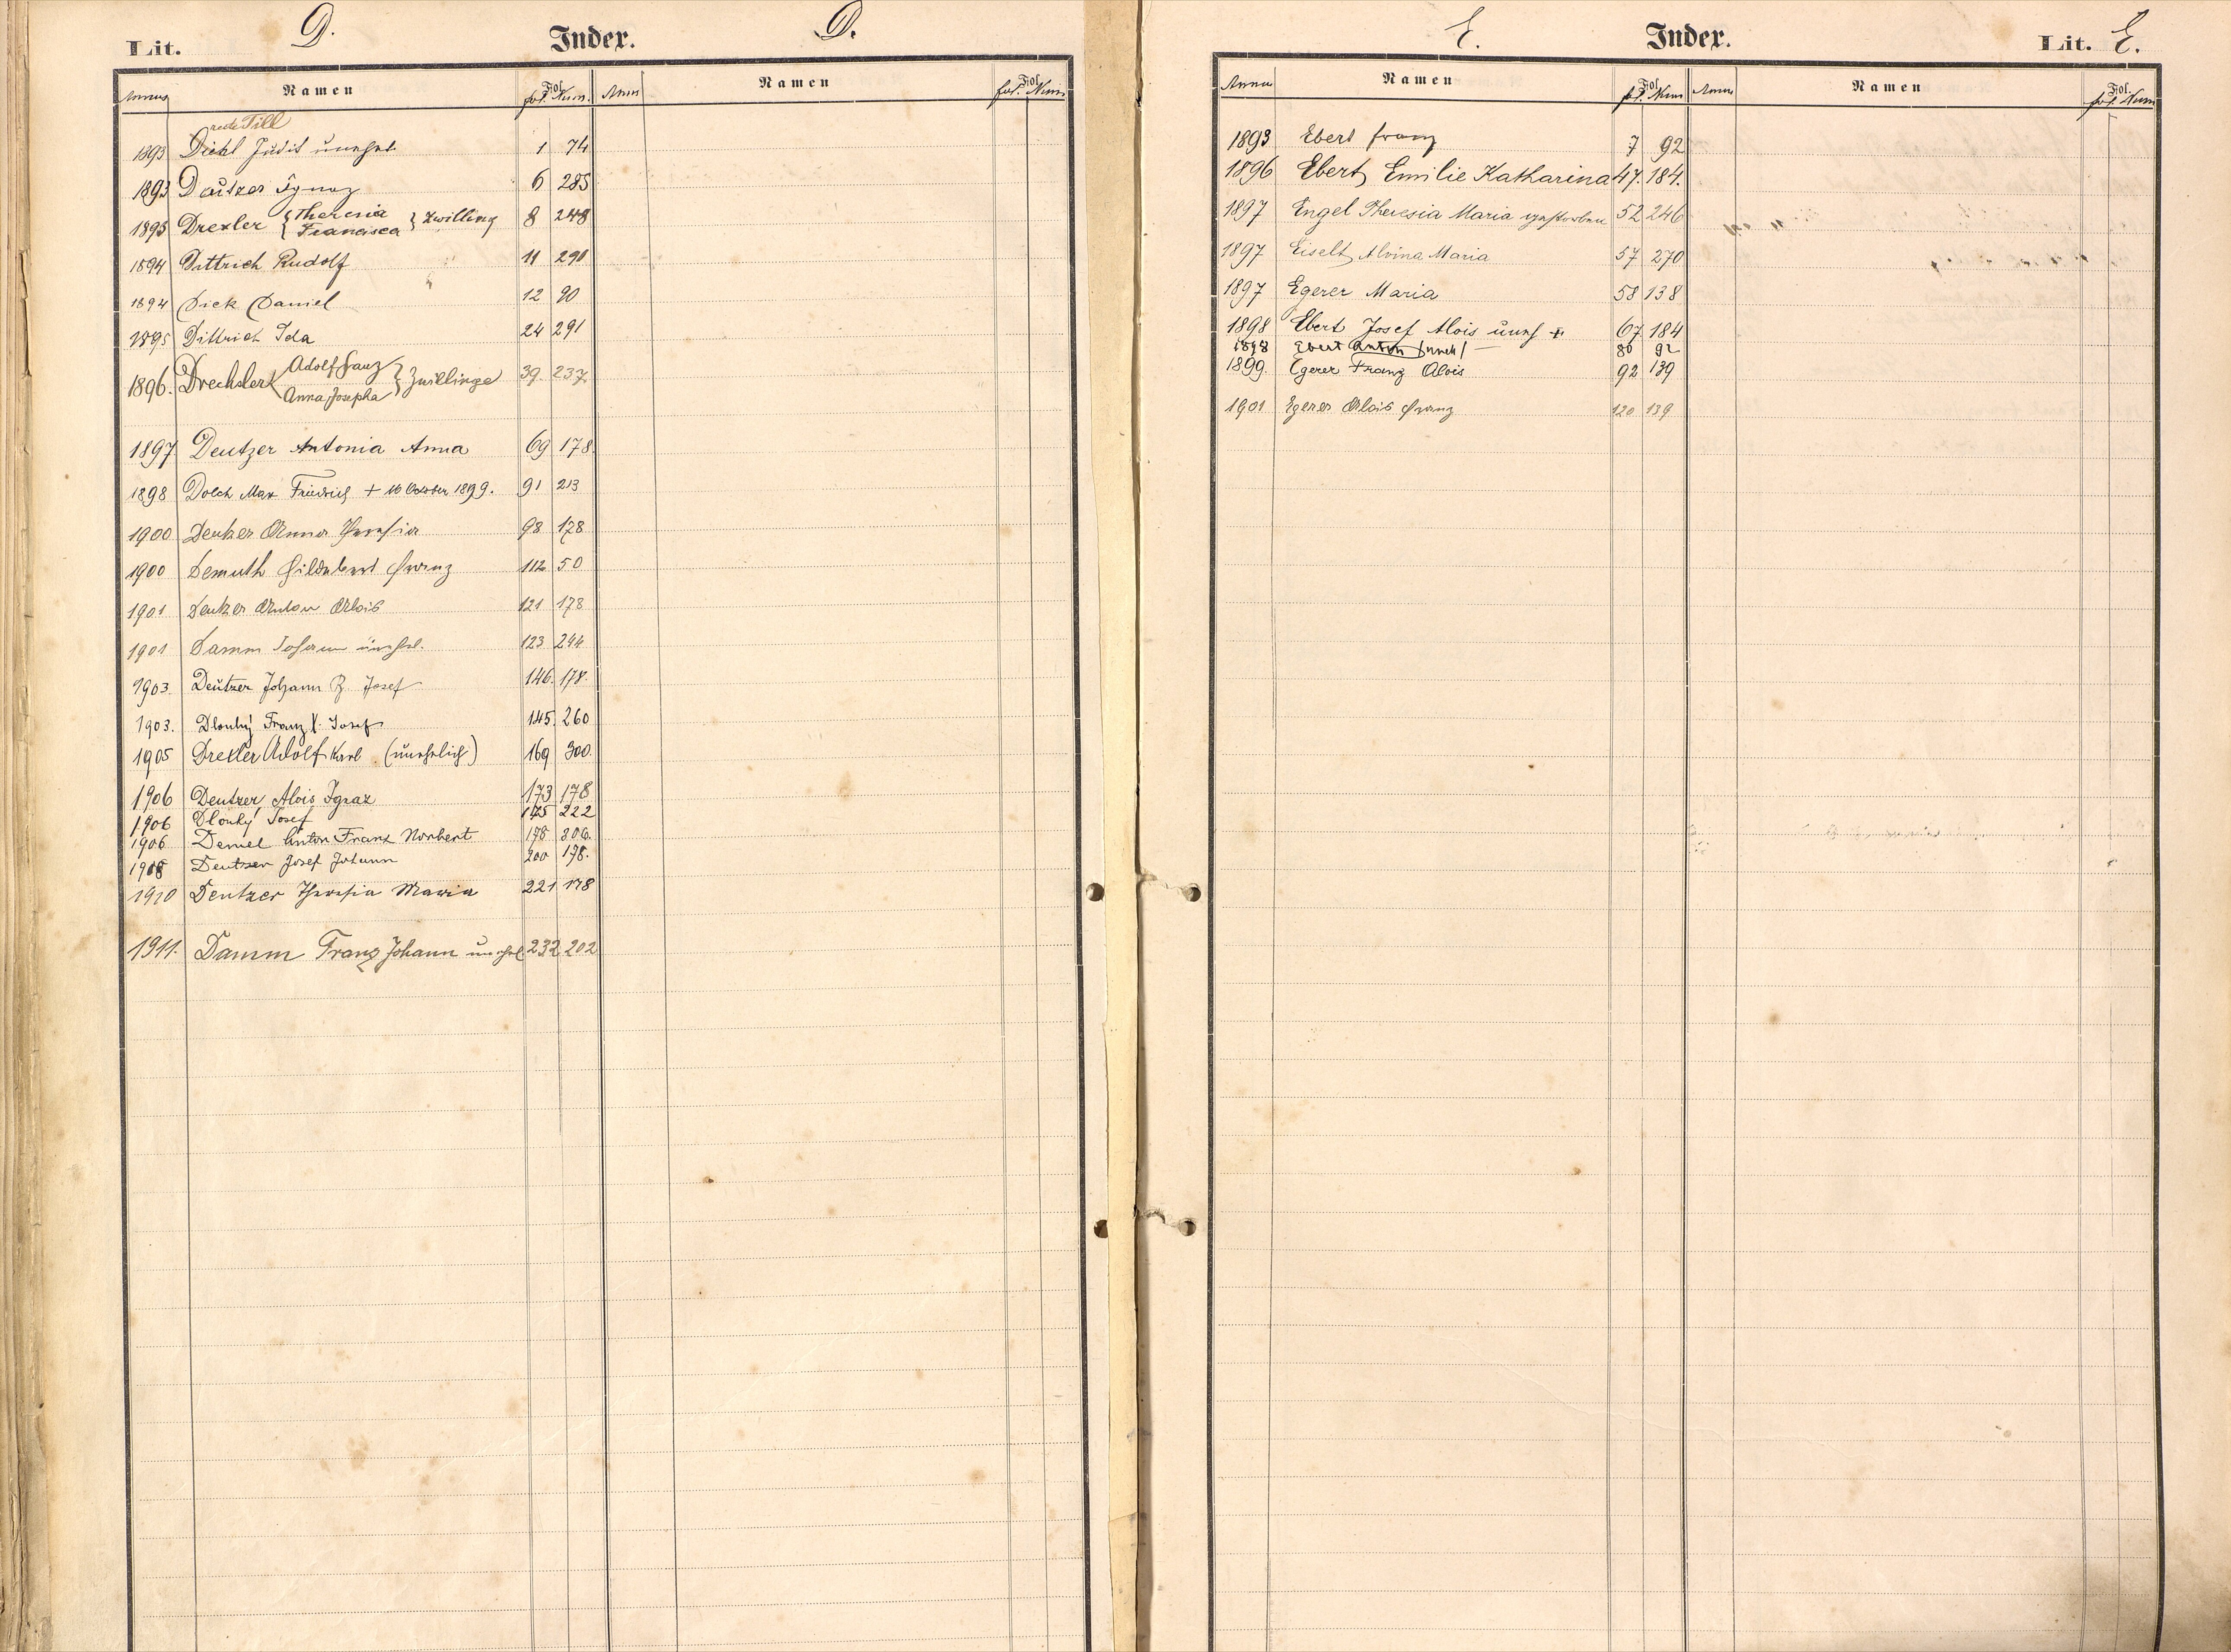 Lit. D. Index. D.
Annus Namen Fol. Num. Ann Namen Fol. Num
recte Till
1893 Diehl Judit unehel. 1 74
1893 Deutzer Ignaz 6 285
1893 Drexler { Theresia Francisca } Zwilling 8 248
1894 Dittrich Rudolf 11 291
1894 Dick Daniel 12 90
1895 Dittrich Ida 24 291
1896. Drechsler { Adolf Franz Anna Josepha } Zwillinge 39. 237.
1897 Deutzer Antonia Anna 69 178.
1898 Dolch Max Friedrich + 16 October 1899. 91 213
1900 Deutzer Anna Theresia 98 178
1900 Demuth Hildebert Franz 112 50
1901 Deutzer Anton Alois 121 178
1901 Damm Johann unehel. 123 244
1903. Deutzer Johann B. Josef 146. 178.
1903. Dlouhý Franz X. Josef 145. 260
1905 Drexler Adolf Karl (unehelich) 169 300.
1906 Deutzer Alois Ignaz 173 178
1906 Dlouhý Josef 175 222
1906 Demel Anton Franz Norbert 178 306.
1908 Deutzer Josef Johann 200 178.
1910 Deutzer Theresia Maria 221 178
1911. Damm Franz Johann unehel. 232 202
E. Index. Lit. E.
Annus Namen Fol. Num Annus Namen Fol. Num
1893 Ebert Franz 7 92
1896 Ebert Emilie Katharina 47. 184.
1897 Engel Theresia Maria gestorben 52 246
1897 Eiselt Alvina Maria 57 270
1897 Egerer Maria 58 138
1898 Ebert Josef Alois uneh + 67. 184
1898 Ebert Anton /uneh/ 80 92
1899. Egerer Franz Alois 92 139
1901 Egerer Alois Franz 120 139